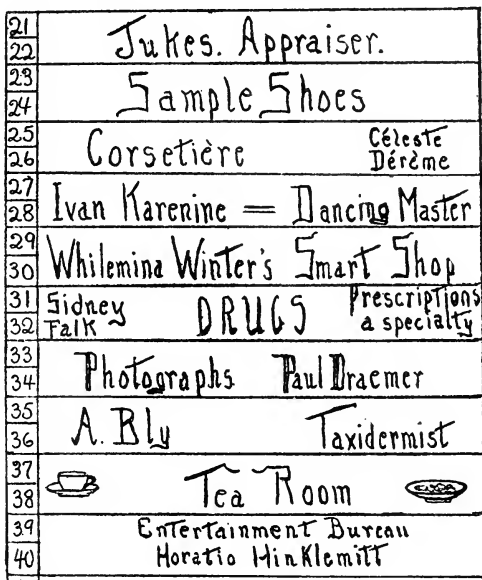 21
22
Jukes. Appraiser.
23
24
Sample Shoes
25
26
Corsetière
Céleste
Dérème
27
28
Ivan Karenine = Dancing Master
29
30
Whilemina Winter's Smart Shop
31
32
Sidney
Falk
DRUGS
Prescriptions
a specialty
33
34
Photographs Paul Draemer
35
36
A. Bly Taxidermist
37
38
Tea Room
39
40
Entertainment Bureau
Horatio Hinklemitt